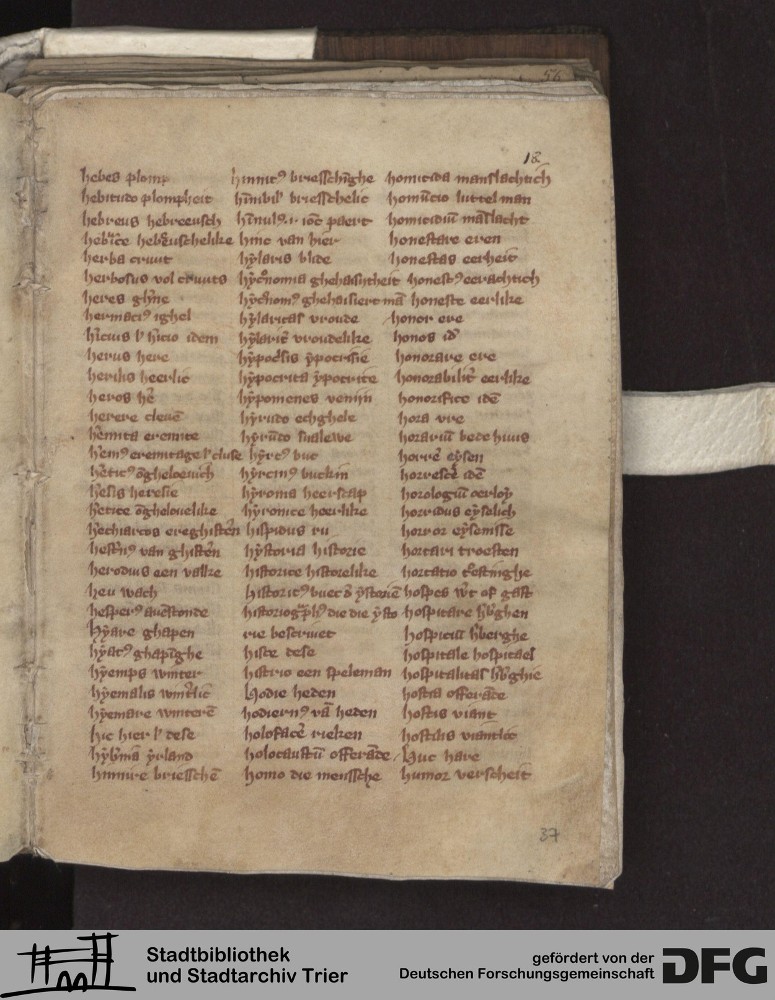 56
18
hebes plomp
hebitudo plompheit
hebreus hebreeusch
hebr̄ice hebr̄euschelike
herba cruut
herbosus vol cruuts
heres ghȳne
hermaciꝰ ighel
hīcius lꝰ hīcio idem
herus here
herilis heerlic
heros hē
herere cleuē
hēmita eremite
hemꝰ eremitage lꝰ cluse
hēticꝰ ōgheloeuich
hēsis heresie
hētice ōghelouelike
hestnꝰ van ghistēn
herodius een valke
heu wach
hesperꝰ auēstonde
Hyare ghapen
hyatꝰ ghapīghe
hyemps winter
hyemalis wint̄lic
hyemare winterē
hic hier lꝰ dese
hybn̄ia yrland
hinnire briesschē
hinnitꝰ briesschīghe
hīnibilꝰ briesschelic
hīnulꝰ .i. ioc paert
hinc van hier
hylaris blide
hylaritas vroude
hylarit̄ vroudelike
ypocrisie
hypocrita ypocrite
hypomenes venijn
hyrudo echghele
hyrūdo sualewe
hyrcꝰ buc
hyrcinꝰ buckin
hyroma heerscap
hyronice heerlike
hispidus ru
hystoria historie
historice historelike
die die ysto
rie bescriuet
histe dese
histrio een speleman
Hodie heden
hodiernꝰ vā heden
holofacē rieken
holocaustū offerāde
homo die menssche
homicida manslachtich
homūcio luttelman
homicidiū māslacht
honestare eren
honestas eerheit
honestꝰ eerachtich
honeste eerlike
honor ere
honos idꝰ
honorare ere
honorabilit̄ eerlike
honorifice idē
hora vre
horariū bede huus
horrē eysen
horrescē idē
horologiū oerloy
horridus eyselich
horror eysenisse
hortari troesten
hortatio tꝰstinghe
hospes wt of gast
hospitare hbghen
hospiciū hberghe
hospitale hospitael
hospitalitas hbghie
hostia offerāde
hostis viant
hostilis viantlic
Huc hare
humor verscheit
37
Stadtbibliothek
und Stadtarchiv Trier
gefördert von der
Deutschen Forschungsgemeinschaft
DFG